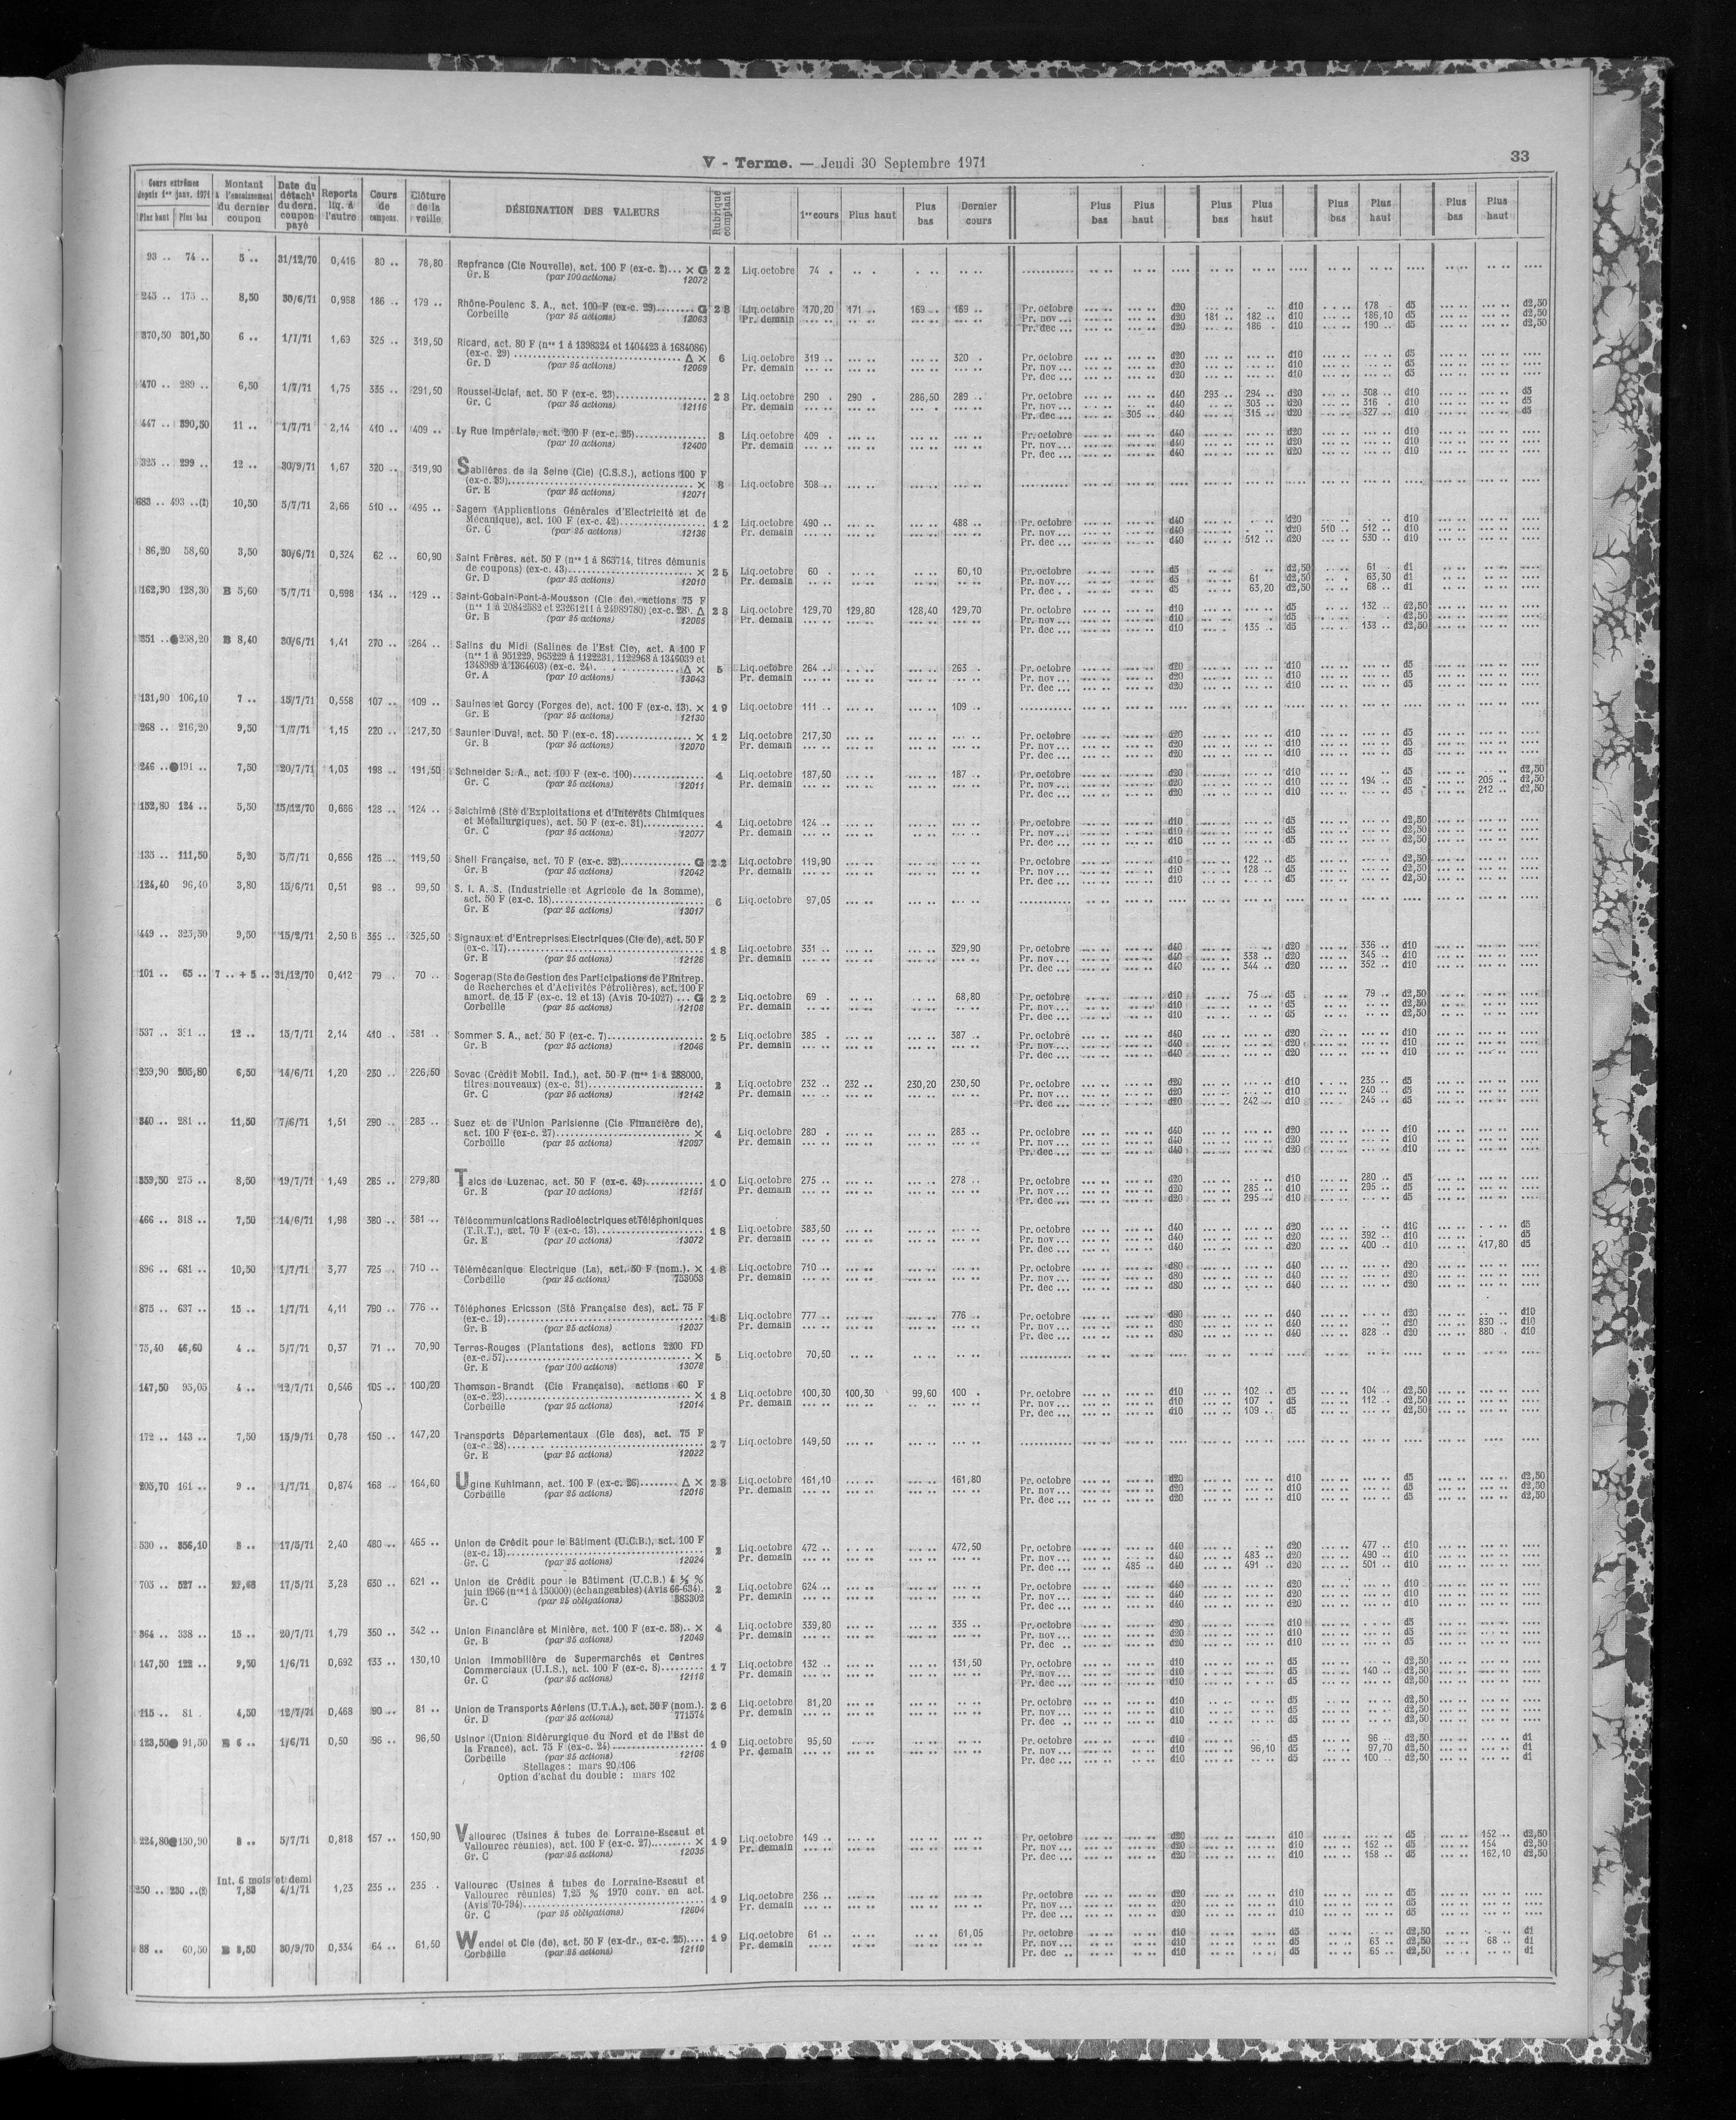 V - Terme. — Jeudi 30 Septembre 1971
33
Cours extrêmes depuis 1er janv. 1971 Plus haut Plus bas
Montant à l'encaissement du dernier coupon
Date du détach' du dern. coupon payé
Reports liq. à l'autre
Cours de compens.
Clôture de la veille
DÉSIGNATION DES VALEURS
Rubrique comptant
1er cours Plus haut Plus bas Dernier cours
Plus bas Plus haut Plus bas Plus haut Plus bas Plus haut Plus bas Plus haut
93 .. 74 .. 5 .. 31/12/70 0,416 80 .. 78,80 Repfrance (Cie Nouvelle), act. 100 F (ex-c. 2)... × G 22 Liq.octobre 74 .
Gr. E (par 100 actions) 12072
245 .. 175 .. 8,50 30/6/71 0,988 186 .. 179 .. Rhône-Poulenc S. A., act. 100 F (ex-c. 29)........ G 28 Liq.octobre 170,20 171 .. 169 .. 169 .. Pr. octobre d20 d10 178 . d5 d2,50
Corbeille (par 25 actions) 12063 Pr. demain Pr. nov... d20 181 .. 182 .. d10 186,10 d5 d2,50
Pr. dec ... d20 186 . d10 190 .. d5 d2,50
370,50 301,50 6 .. 1/7/71 1,69 325 .. 319,50 Ricard, act. 80 F (nos 1 à 1398324 et 1404423 à 1684086)
(ex-c. 29) ........ Δ × 6 Liq.octobre 319 .. 320 . Pr. octobre d20 d10 d5
Gr. D (par 25 actions) 12069 Pr. demain Pr. nov... d20 d10 d5
Pr. dec ... d20 d10 d5
470 .. 289 .. 6,50 1/7/71 1,75 335 .. 291,50 Roussel-Uclaf, act. 50 F (ex-c. 23)........ 23 Liq.octobre 290 . 290 . 286,50 289 .. Pr. octobre d40 293 .. 294 .. d20 308 .. d10 d5
Gr. C (par 25 actions) 12116 Pr. demain Pr. nov... d40 303 .. d20 316 .. d10 d5
Pr. dec ... 305 .. d40 315 .. d20 327 .. d10 d5
447 .. 390,50 11 .. 1/7/71 2,14 410 .. 409 .. Ly Rue Impériale, act. 200 F (ex-c. 25)........ 8 Liq.octobre 409 . Pr. octobre d40 d20 d10
(par 10 actions) 12400 Pr. nov... d40 d20 d10
Pr. dec ... d40 d20 d10
325 .. 299 .. 12 .. 30/9/71 1,67 320 .. 319,90 Sablières de la Seine (Cie) (C.S.S.), actions 100 F
(ex-c. 39)........ × 8 Liq.octobre 308 ..
Gr. E (par 25 actions) 12071
683 .. 493 ..(1) 10,50 5/7/71 2,66 510 .. 495 .. Sagem (Applications Générales d'Electricité et de
Mécanique), act. 100 F (ex-c. 42)........ 12 Liq.octobre 490 .. 488 .. Pr. octobre d40 d20 d10
Gr. C (par 25 actions) 12136 Pr. demain Pr. nov... d40 d20 510 .. 512 .. d10
Pr. dec ... d40 512 .. d20 530 .. d10
86,20 58,60 3,50 30/6/71 0,324 62 .. 60,90 Saint Frères, act. 50 F (nos 1 à 863714, titres démunis
de coupons) (ex-c. 43)........ × 25 Liq.octobre 60 . 60,10 Pr. octobre d5 d2,50 61 . d1
Gr. D (par 25 actions) 12010 Pr. demain Pr. nov... d5 61 . d2,50 63,30 d1
Pr. dec . . d5 63,20 d2,50 68 .. d1
162,90 128,30 B 5,60 5/7/71 0,698 134 .. 129 .. Saint-Gobain-Pont-à-Mousson (Cie de), actions 75 F
(nos 1 à 20842582 et 23261211 à 24989780) (ex-c. 28) Δ 28 Liq.octobre 129,70 129,80 128,40 129,70 Pr. octobre d10 d5 132 .. d2,50
Gr. B (par 25 actions) 12065 Pr. demain Pr. nov... d10 d5 d2,50
Pr. dec ... d10 135 .. d5 133 .. d2,50
351 .. 258,20 B 8,40 30/6/71 1,41 270 .. 264 .. Salins du Midi (Salines de l'Est Cie), act. A 100 F
(nos 1 à 951229, 965229 à 1122231, 1122968 à 1346039 et
1348989 à 1364603) (ex-c. 24). Δ × 5 Liq.octobre 264 .. 263 . Pr. octobre d20 d10 d5
Gr. A (par 10 actions) 13043 Pr. demain Pr. nov... d20 d10 d5
Pr. dec ... d20 d10 d5
131,90 106,10 7 .. 15/7/71 0,558 107 .. 109 .. Saulnes et Gorcy (Forges de), act. 100 F (ex-c. 13). × 19 Liq.octobre 111 .. 109 ..
Gr. E (par 25 actions) 12130
268 .. 216,20 9,50 1/7/71 1,15 220 .. 217,30 Saunier Duval, act. 50 F (ex-c. 18)........ × 12 Liq.octobre 217,30 Pr. octobre d20 d10 d5
Gr. B (par 25 actions) 12070 Pr. demain Pr. nov... d20 d10 d5
Pr. dec ... d20 d10 d5
246 .. 191 .. 7,50 20/7/71 1,03 198 .. 191,50 Schneider S. A., act. 100 F (ex-c. 100)........ 4 Liq.octobre 187,50 187 .. Pr. octobre d20 d10 d5 d2,50
Gr. C (par 25 actions) 12011 Pr. demain Pr. nov... d20 d10 194 .. d5 205 .. d2,50
Pr. dec ... d20 d10 d5 212 .. d2,50
152,80 124 .. 5,50 15/12/70 0,666 128 .. 124 .. Salchimé (Sté d'Exploitations et d'Intérêts Chimiques
et Métallurgiques), act. 50 F (ex-c. 31)........ 4 Liq.octobre 124 .. Pr. octobre d10 d5 d2,50
Gr. C (par 25 actions) 12077 Pr. demain Pr. nov... d10 d5 d2,50
Pr. dec ... d10 d5 d2,50
135 .. 111,50 5,20 5/7/71 0,656 126 .. 119,50 Shell Française, act. 70 F (ex-c. 32)........ G 22 Liq.octobre 119,90 Pr. octobre d10 122 .. d5 d2,50
Gr. B (par 25 actions) 12042 Pr. demain Pr. nov... d10 128 .. d5 d2,50
Pr. dec ... d10 d5 d2,50
124,40 96,40 3,80 15/6/71 0,51 98 .. 99,50 S. I. A. S. (Industrielle et Agricole de la Somme),
act. 50 F (ex-c. 18)........ 6 Liq.octobre 97,05
Gr. E (par 25 actions) 13017
449 .. 323,50 9,50 15/2/71 2,50 B 355 .. 325,50 Signaux et d'Entreprises Electriques (Cie de), act. 50 F
(ex-c. 17)........ 18 Liq.octobre 331 .. 329,90 Pr. octobre d40 d20 336 .. d10
Gr. E (par 25 actions) 12126 Pr. demain Pr. nov... d40 338 .. d20 345 .. d10
Pr. dec ... d40 344 .. d20 352 .. d10
101 .. 65 .. 7 .. + 5 .. 31/12/70 0,412 79 . 70 .. Sogerap (Ste de Gestion des Participations de l'Entrep.
de Recherches et d'Activités Pétrolières), act. 100 F
amort. de 15 F (ex-c. 12 et 13) (Avis 70-1027) ... G 22 Liq.octobre 69 . 68,80 Pr. octobre d10 75 .. d5 79 .. d2,50
Corbeille (par 25 actions) 12108 Pr. demain Pr. nov... d10 d5 d2,50
Pr. dec ... d10 d5 d2,50
537 .. 351 .. 12 .. 15/7/71 2,14 410 .. 381 .. Sommer S. A., act. 50 F (ex-c. 7)........ 25 Liq.octobre 385 . 387 .. Pr. octobre d40 d20 d10
Gr. B (par 25 actions) 12046 Pr. demain Pr. nov... d40 d20 d10
Pr. dec ... d40 d20 d10
259,90 205,80 6,50 14/6/71 1,20 230 .. 226,50 Sovac (Crédit Mobil. Ind.), act. 50 F (nos 1 à 288000,
titres nouveaux) (ex-c. 31)........ 2 Liq.octobre 232 .. 232 .. 230,20 230,50 Pr. octobre d20 d10 235 .. d5
Gr. C (par 25 actions) 12142 Pr. demain Pr. nov... d20 d10 240 .. d5
Pr. dec ... d20 242 .. d10 245 .. d5
340 .. 281 .. 11,50 7/6/71 1,51 290 .. 283 .. Suez et de l'Union Parisienne (Cie Financière de),
act. 100 F (ex-c. 27)........ × 4 Liq.octobre 280 . 283 .. Pr. octobre d40 d20 d10
Corbeille (par 25 actions) 12097 Pr. demain Pr. nov... d40 d20 d10
Pr. dec ... d40 d20 d10
359,50 275 .. 8,50 19/7/71 1,49 285 .. 279,80 Talcs de Luzenac, act. 50 F (ex-c. 49)........ 10 Liq.octobre 275 .. 278 .. Pr. octobre d20 d10 280 .. d5
Gr. E (par 10 actions) 12151 Pr. demain Pr. nov... d20 285 .. d10 295 .. d5
Pr. dec ... d20 295 .. d10 d5
466 .. 318 .. 7,50 14/6/71 1,98 380 .. 381 .. Télécommunications Radioélectriques et Téléphoniques
(T.R.T.), act. 70 F (ex-c. 13)........ 18 Liq.octobre 383,50 Pr. octobre d40 d20 d10 d5
Gr. E (par 10 actions) 13072 Pr. demain Pr. nov... d40 d20 392 .. d10 d5
Pr. dec ... d40 d20 400 .. d10 417,80 d5
896 .. 681 .. 10,50 1/7/71 3,77 725 .. 710 .. Télémécanique Electrique (La), act. 50 F (nom.). × 18 Liq.octobre 710 .. Pr. octobre d80 d40 d20
Corbeille (par 25 actions) 753053 Pr. demain Pr. nov... d80 d40 d20
Pr. dec ... d80 d40 d20
875 .. 637 .. 15 .. 1/7/71 4,11 790 .. 776 .. Téléphones Ericsson (Sté Française des), act. 75 F
(ex-c. 19)........ 18 Liq.octobre 777 .. 776 .. Pr. octobre d80 d40 d20 d10
Gr. B (par 25 actions) 12037 Pr. demain Pr. nov... d80 d40 d20 830 .. d10
Pr. dec ... d80 d40 828 .. d20 880 . d10
75,40 46,60 4 .. 5/7/71 0,37 71 .. 70,90 Terres-Rouges (Plantations des), actions 2200 FD
(ex-c. 57)........ × 5 Liq.octobre 70,50
Gr. E (par 100 actions) 13078
147,50 95,05 4 .. 12/7/71 0,546 105 .. 100,20 Thomson-Brandt (Cie Française), actions 60 F
(ex-c. 23)........ × 18 Liq.octobre 100,30 100,30 99,60 100 . Pr. octobre d10 102 . d5 104 .. d2,50
Corbeille (par 25 actions) 12014 Pr. demain Pr. nov... d10 107 . d5 112 .. d2,50
Pr. dec ... d10 109 .. d5 d2,50
172 .. 143 .. 7,50 15/9/71 0,78 150 .. 147,20 Transports Départementaux (Gle des), act. 75 F
(ex-c. 28)........ 27 Liq.octobre 149,50
Gr. E (par 25 actions) 12022
205,70 161 .. 9 .. 1/7/71 0,874 168 .. 164,60 Ugine Kuhlmann, act. 100 F (ex-c. 26)........ Δ × 28 Liq.octobre 161,10 161,80 Pr. octobre d20 d10 d5 d2,50
Corbeille (par 25 actions) 12016 Pr. demain Pr. nov... d20 d10 d5 d2,50
Pr. dec ... d20 d10 d5 d2,50
530 .. 356,10 8 .. 17/5/71 2,40 480 .. 465 .. Union de Crédit pour le Bâtiment (U.C.B.), act. 100 F
(ex-c. 13)........ 2 Liq.octobre 472 .. 472,50 Pr. octobre d40 d20 477 .. d10
Gr. C (par 25 actions) 12024 Pr. demain Pr. nov... d40 483 .. d20 490 .. d10
Pr. dec ... 485 .. d40 491 .. d20 501 .. d10
705 .. 527 .. 17/5/71 3,28 630 .. 621 .. Union de Crédit pour le Bâtiment (U.C.B.) 4 ½ %
juin 1966 (nos 1 à 150000) (échangeables) (Avis 66-634). 2 Liq.octobre 624 .. Pr. octobre d40 d20 d10
Gr. C (par 25 obligations) 383302 Pr. demain Pr. nov... d40 d20 d10
Pr. dec ... d40 d20 d10
364 .. 338 .. 15 .. 20/7/71 1,79 350 .. 342 .. Union Financière et Minière, act. 100 F (ex-c. 58).. × 4 Liq.octobre 339,80 335 .. Pr. octobre d20 d10 d5
Gr. B (par 25 actions) 12049 Pr. demain Pr. nov... d20 d10 d5
Pr. dec .. d20 d10 d5
147,50 122 .. 9,50 1/6/71 0,692 133 .. 130,10 Union Immobilière de Supermarchés et Centres
Commerciaux (U.I.S.), act. 100 F (ex-c. 8)........ 17 Liq.octobre 132 .. 131,50 Pr. octobre d10 d5 d2,50
Gr. C (par 25 actions) 12118 Pr. demain Pr. nov... d10 d5 140 .. d2,50
Pr. dec ... d10 d5 d2,50
115 .. 81 . 4,50 12/7/71 0,468 90 .. 81 .. Union de Transports Aériens (U.T.A.), act. 50 F (nom.). 26 Liq.octobre 81,20 Pr. octobre d10 d5 d2,50
Gr. D (par 25 actions) 771574 Pr. demain Pr. nov... d10 d5 d2,50
Pr. dec .. d10 d5 d2,50
123,50 91,50 B 6 .. 1/6/71 0,50 96 .. 96,50 Usinor (Union Sidérurgique du Nord et de l'Est de
la France), act. 75 F (ex-c. 24)........ 19 Liq.octobre 95,50 Pr. octobre d10 d5 96 .. d2,50 d1
Corbeille (par 25 actions) 12106 Pr. demain Pr. nov... d10 96,10 d5 97,70 d2,50 d1
Stellages : mars 90,106 Pr. dec ... d10 d5 100 .. d2,50 d1
Option d'achat du double : mars 102
224,80 150,90 8 .. 5/7/71 0,818 157 .. 150,90 Vallourec (Usines à tubes de Lorraine-Escaut et
Vallourec réunies), act. 100 F (ex-c. 27)........ × 19 Liq.octobre 149 .. Pr. octobre d20 d10 d5 152 .. d2,50
Gr. C (par 25 actions) 12035 Pr. demain Pr. nov... d20 d10 152 .. d5 154 .. d2,50
Pr. dec ... d20 d10 158 .. d5 162,10 d2,50
Int. 6 mois et demi
250 .. 230 .. 7,83 4/1/71 1,23 235 .. 235 . Vallourec (Usines à tubes de Lorraine-Escaut et
Vallourec réunies) 7,25 % 1970 conv. en act.
(Avis 70-794)........ 19 Liq.octobre 236 .. Pr. octobre d20 d10 d5
Gr. C (par 25 obligations) 12604 Pr. demain Pr. nov... d20 d10 d5
Pr. dec ... d20 d10 d5
88 .. 60,50 B 3,50 30/9/70 0,334 64 .. 61,50 Wendel et Cie (de), act. 50 F (ex-dr., ex-c. 25).... 19 Liq.octobre 61 .. 61,05 Pr. octobre d10 d5 d2,50 d1
Corbeille (par 25 actions) 12110 Pr. demain Pr. nov... d10 d5 63 .. d2,50 68 .. d1
Pr. dec .. d10 d5 65 .. d2,50 d1